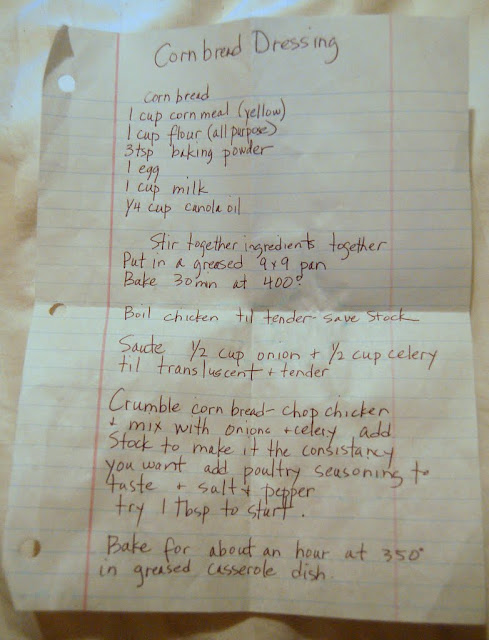 Corn bread Dressing
corn bread
1 cup corn meal (yellow)
1 cup flour (all purpose)
3 tsp baking powder
1 egg
1 cup milk
1/4 cup canola oil
Stir together ingredients together
Put in a greased 9x9 pan
Bake 30 mn at 400°
Boil chicken til tender - save stock
Saute 1/2 cup onion + 1/2 cup celery
til transluscent + tender
Crumble corn bread - chop chicken
+ mix with onions + celery add
Stock to make it the consistancy
you want add poultry seasoning to
taste + salt + pepper
try 1 Tbsp to start.
Bake for about an hour at 350°
in greased casserole dish.